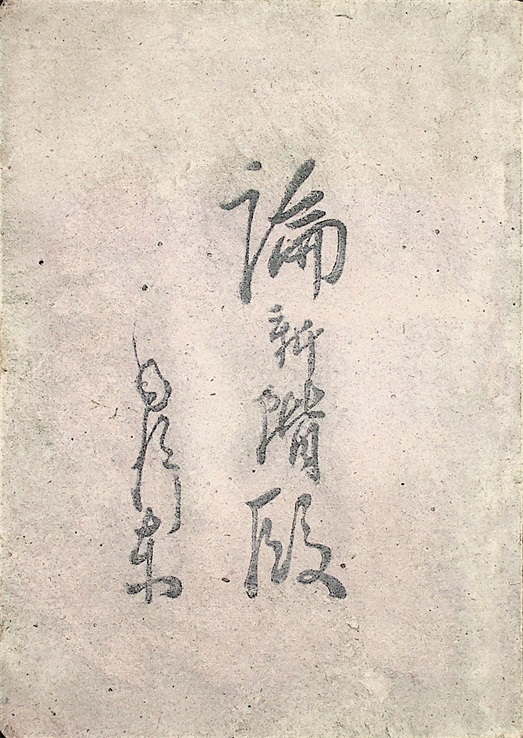 論新階段
毛澤東